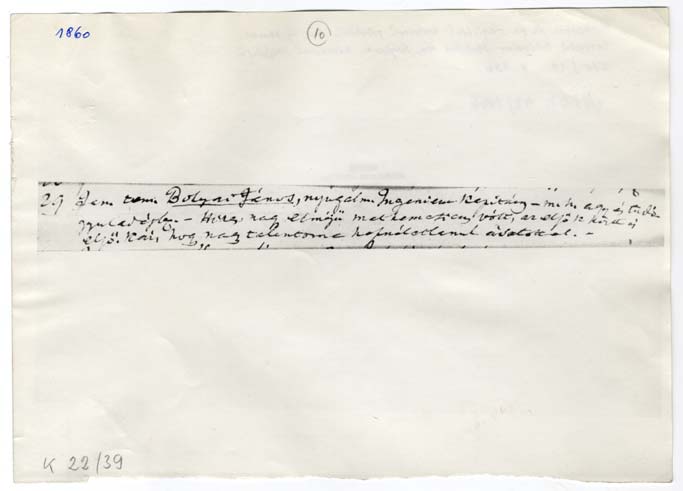 1860
10
29 Jan. tem. Bolyai János, nyugalm. Ingenieur Kapitány – mh. agy és tüdő
gyuladásba. – Híres, nagy elméjű mathematicus volt, az elsők között is
első. Kár, hogy nagy talentoma használatlanul ásatott el. –
K 22/39